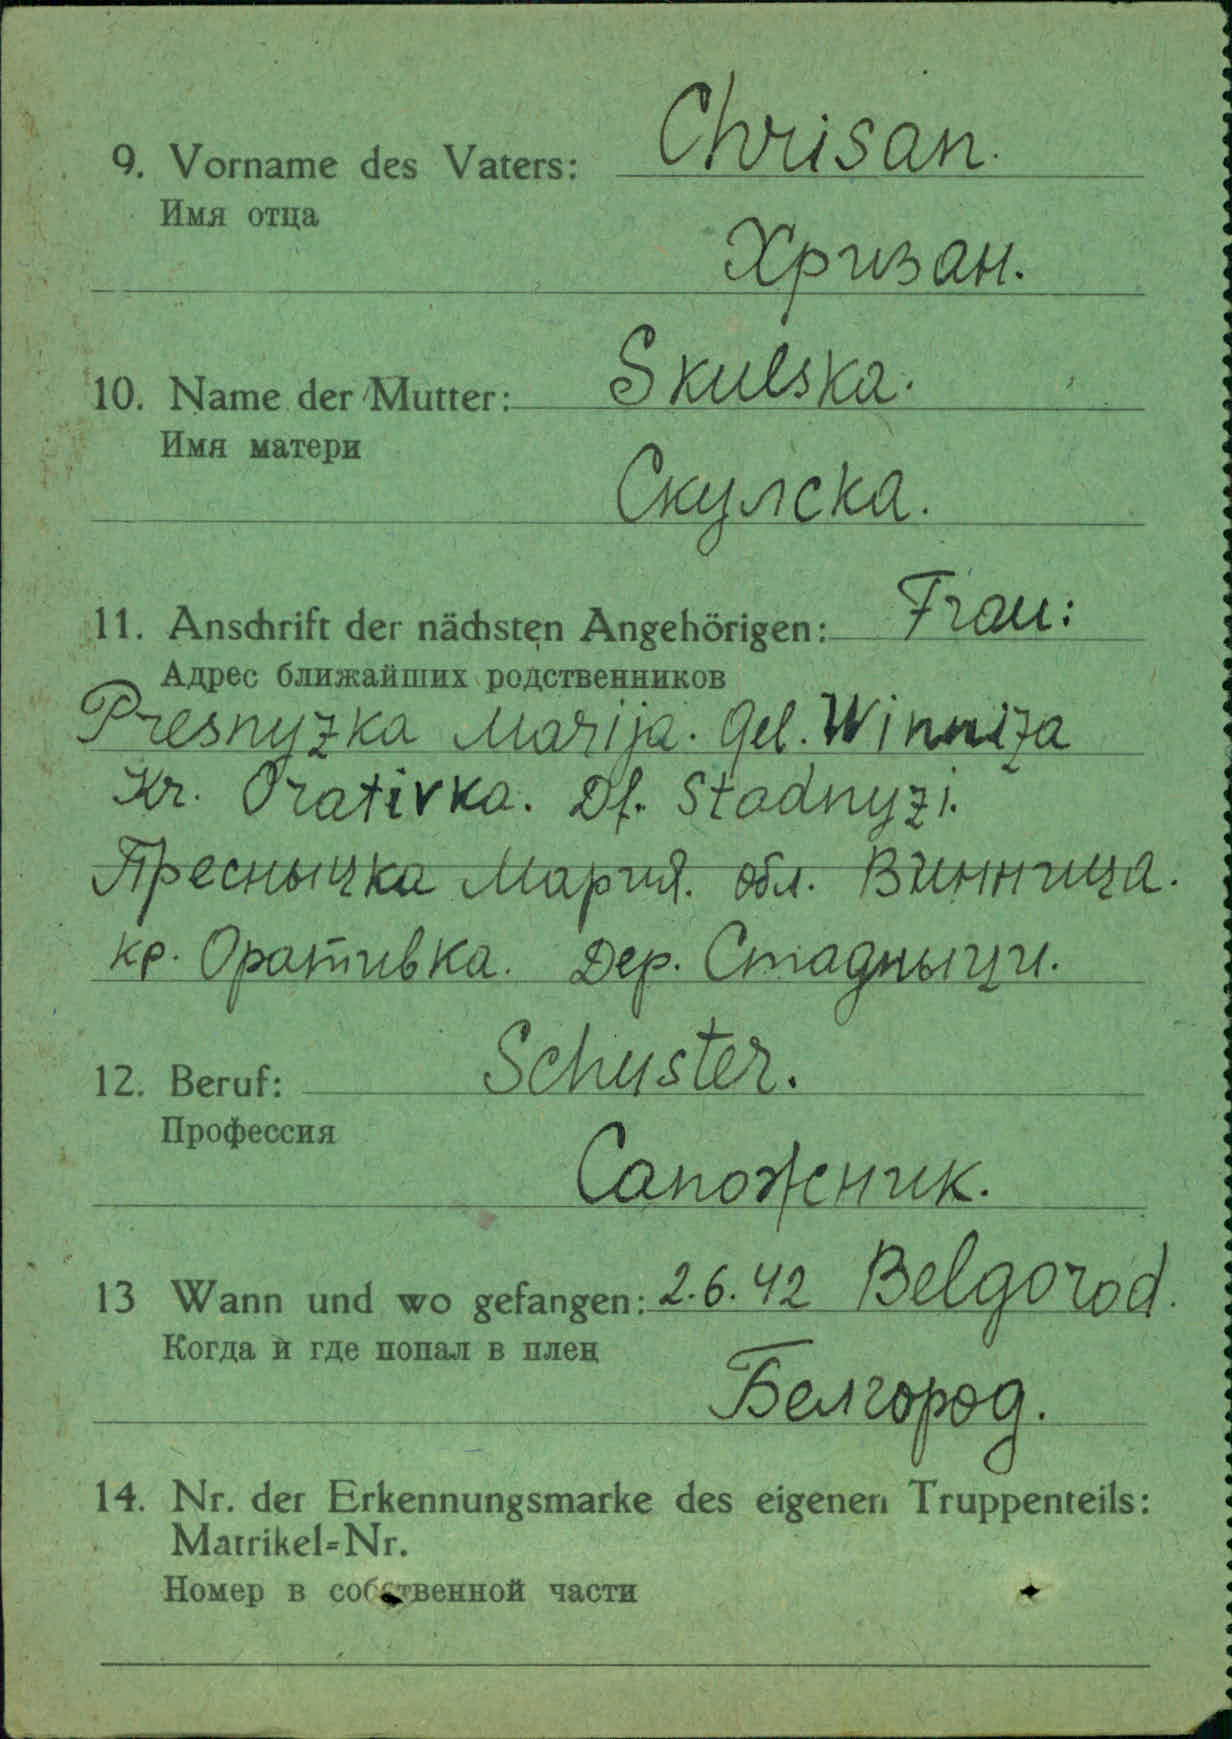 9. Vorname des Vaters: Chrisan.
Имя отца
Хризан.
10. Name der Mutter: Skulska.
Имя матери
Скулска.
11. Anschrift der nächsten Angehörigen: Frau:
Адрес ближайших родственников
Presnyzka Marija. Gel. Winniza
Kr. Orativka. Df. Stadnyzi.
Пресныцка Мария. обл. Винница.
кр. Оративка. Дер. Стадныци.
12. Beruf: Schuster.
Профессия
Сапожник.
13 Wann und wo gefangen: 2.6.42 Belgorod.
Когда и где попал в плен
Белгород.
14. Nr. der Erkennungsmarke des eigenen Truppenteils:
Matrikel=Nr.
Номер в собственной части